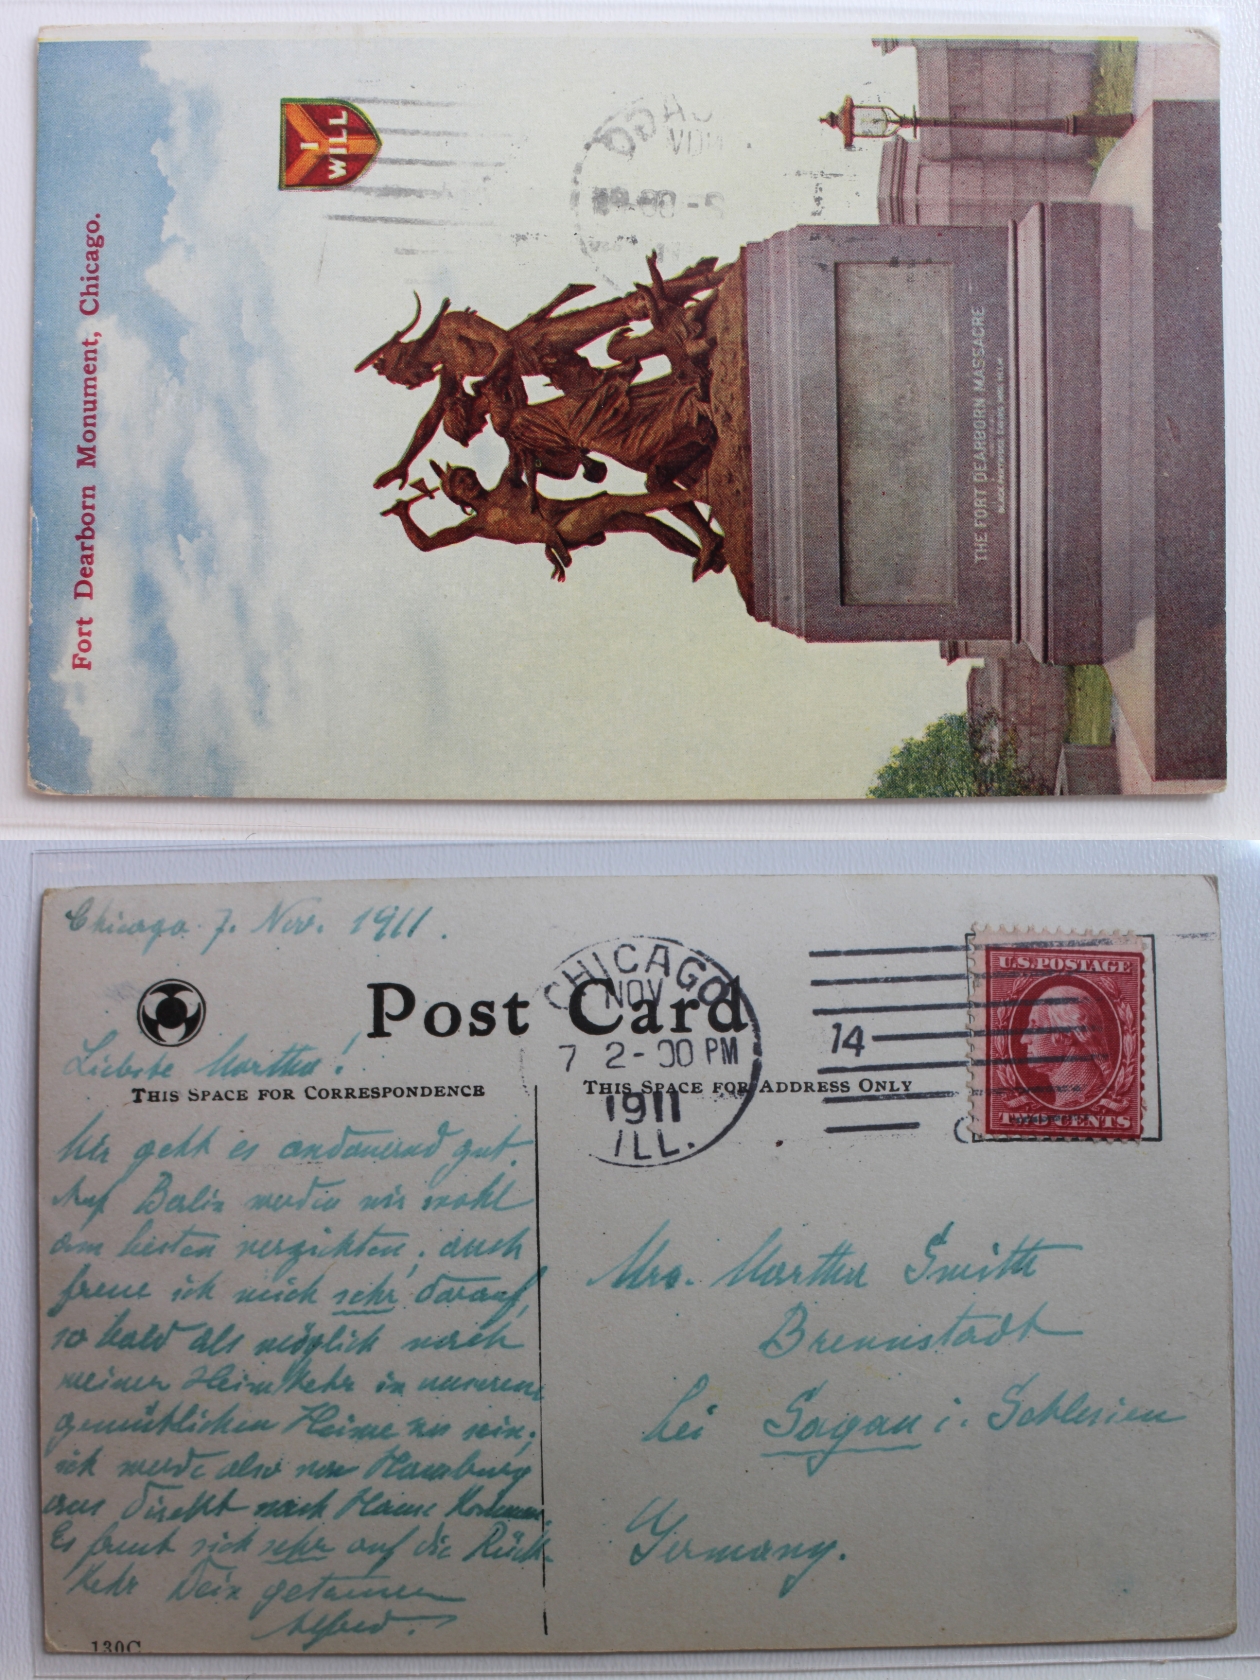 Fort Dearborn Monument, Chicago.
I
WILL
THE FORT DEARBORN MASSACRE
Chicago 7. Nov. 1911.
Post Card
CHICAGO
NOV
7 2-00 PM
1911
ILL.
14
U.S. POSTAGE
TWO CENTS
Liebste Martha!
THIS SPACE FOR CORRESPONDENCE
THIS SPACE FOR ADDRESS ONLY
Mir geht es andauernd gut.
Auf Berlin werden wir wohl
am besten verzichten, auch
freue ich mich sehr darauf,
so bald als möglich nach
meiner Heimkehr in unserem
gemütlichen Heime zu sein;
ich werde also von Hamburg
aus direkt nach Hause kommen.
Es freut sich sehr auf die Rück-
kehr Dein getreuer
Alfred.
Mrs. Martha Smith
Brennstadt
bei Sagan i. Schlesien
Germany.
130C